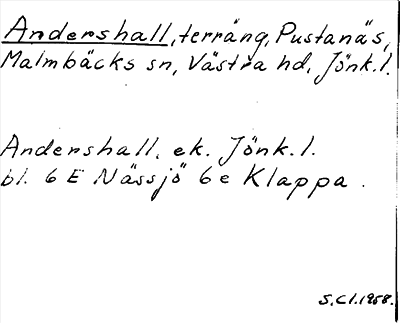 Andershall, terräng, Pustanäs,
Malmbäcks sn, Västra hd, Jönk.l.
Andershall. ek. Jönk.l.
bl. 6 E Nässjö 6 e Klappa.
S.Cl.1958.